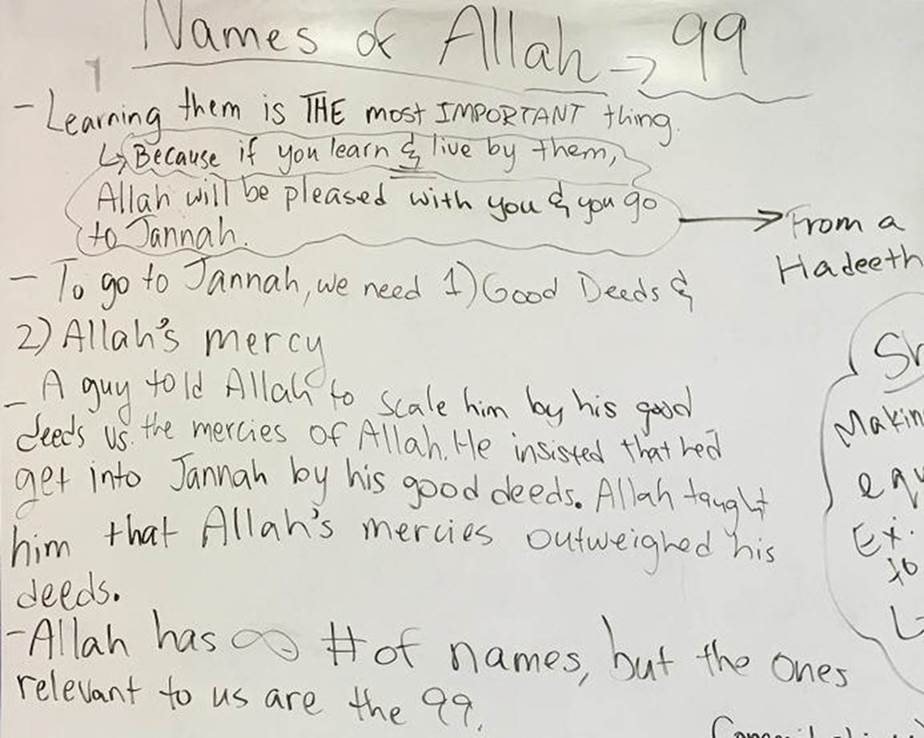 Names of Allah → 99
- Learning them is THE most IMPORTANT thing.
↳ Because if you learn & live by them,
Allah will be pleased with you & you go
to Jannah.
→ From a
Hadeeth
- To go to Jannah, we need 1) Good Deeds &
2) Allah's mercy
- A guy told Allah to scale him by his good
deeds vs. the mercies of Allah. He insisted that hed
get into Jannah by his good deeds. Allah taught
him that Allah's mercies outweighed his
deeds.
- Allah has ∞ # of names, but the ones
relevant to us are the 99.
Makin
equ
Ex.
to